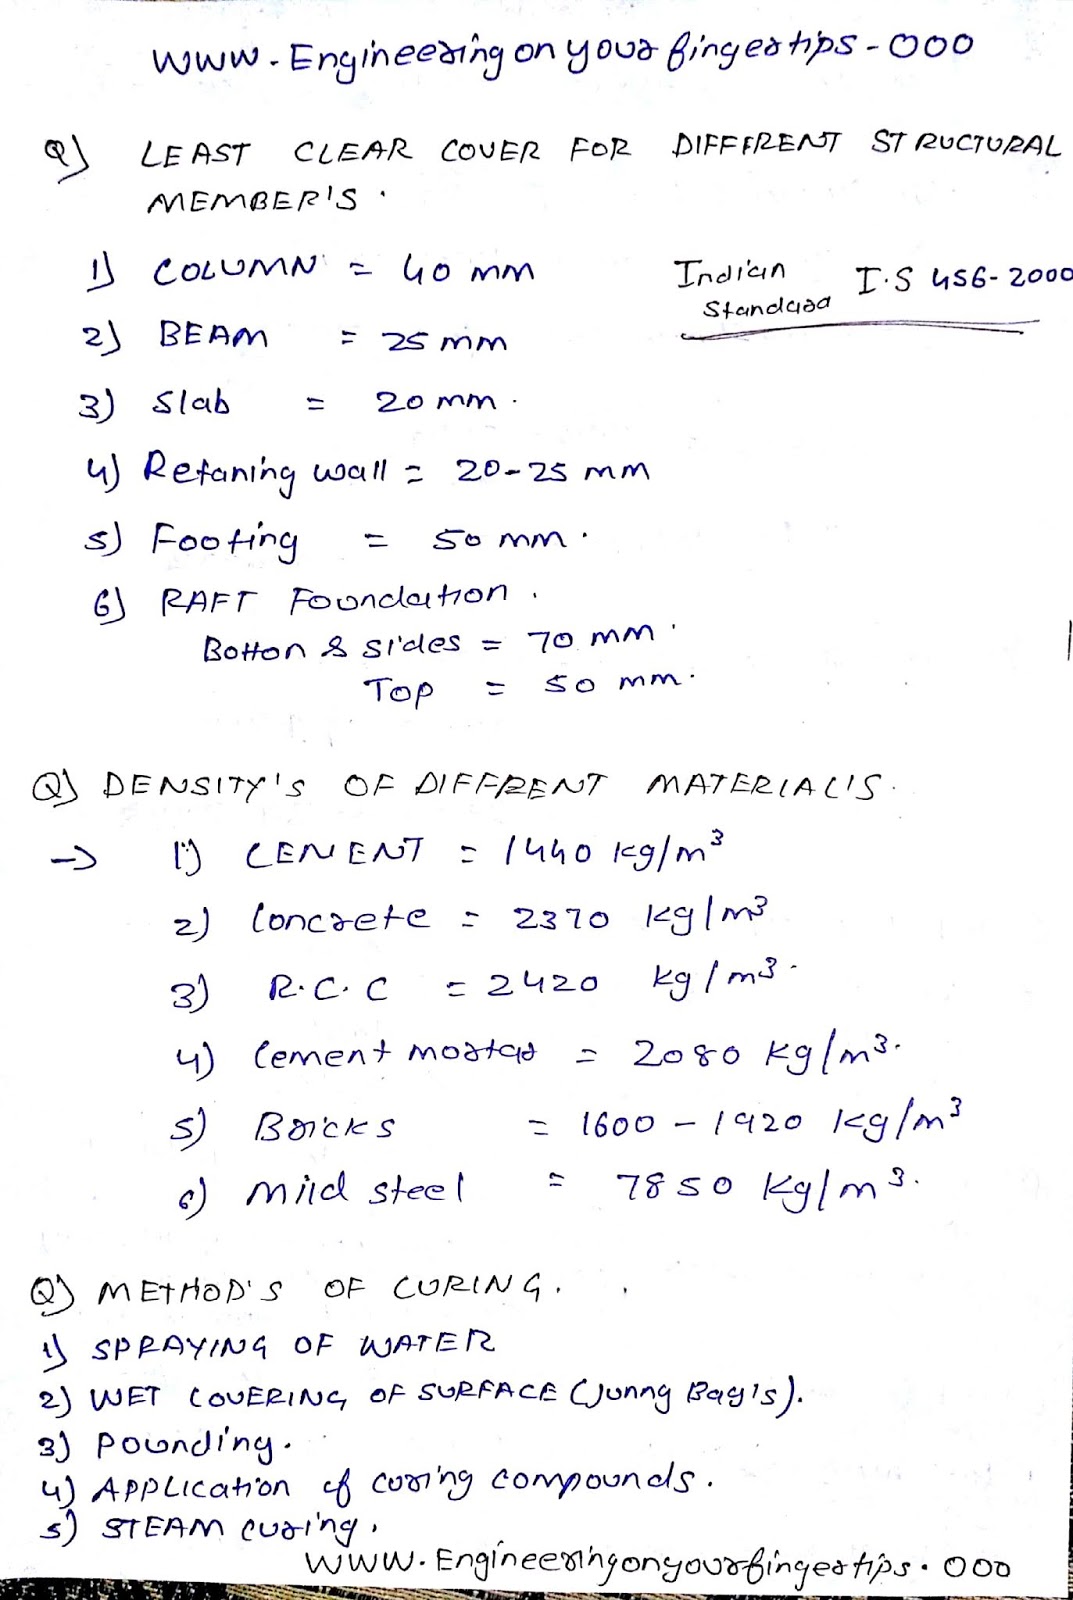 www.Engineering on your fingertips-000
Q) LEAST CLEAR COVER FOR DIFFERENT STRUCTURAL
MEMBER'S.
1) COLUMN = 40 mm
Indian Standard I.S 456-2000
2) BEAM = 25 mm
3) Slab = 20 mm.
4) Retaning wall = 20-25 mm
5) Footing = 50 mm.
6) RAFT Foundation.
Botton & sides = 70 mm.
Top = 50 mm.
Q) DENSITY'S OF DIFFRENT MATERIALS.
→ 1) CEMENT = 1440 kg/m³
2) Concrete = 2370 kg/m³
3) R.C.C = 2420 kg/m³.
4) Cement mortar = 2080 kg/m³.
5) Bricks = 1600 - 1920 kg/m³
6) mild steel = 7850 kg/m³.
Q) METHOD'S OF CURING.
1) SPRAYING OF WATER
2) WET COVERING OF SURFACE (Junng Bag's).
3) Pounding.
4) APPLication of curing compounds.
5) STEAM curing.
www.Engineeringonyourfingertips.000